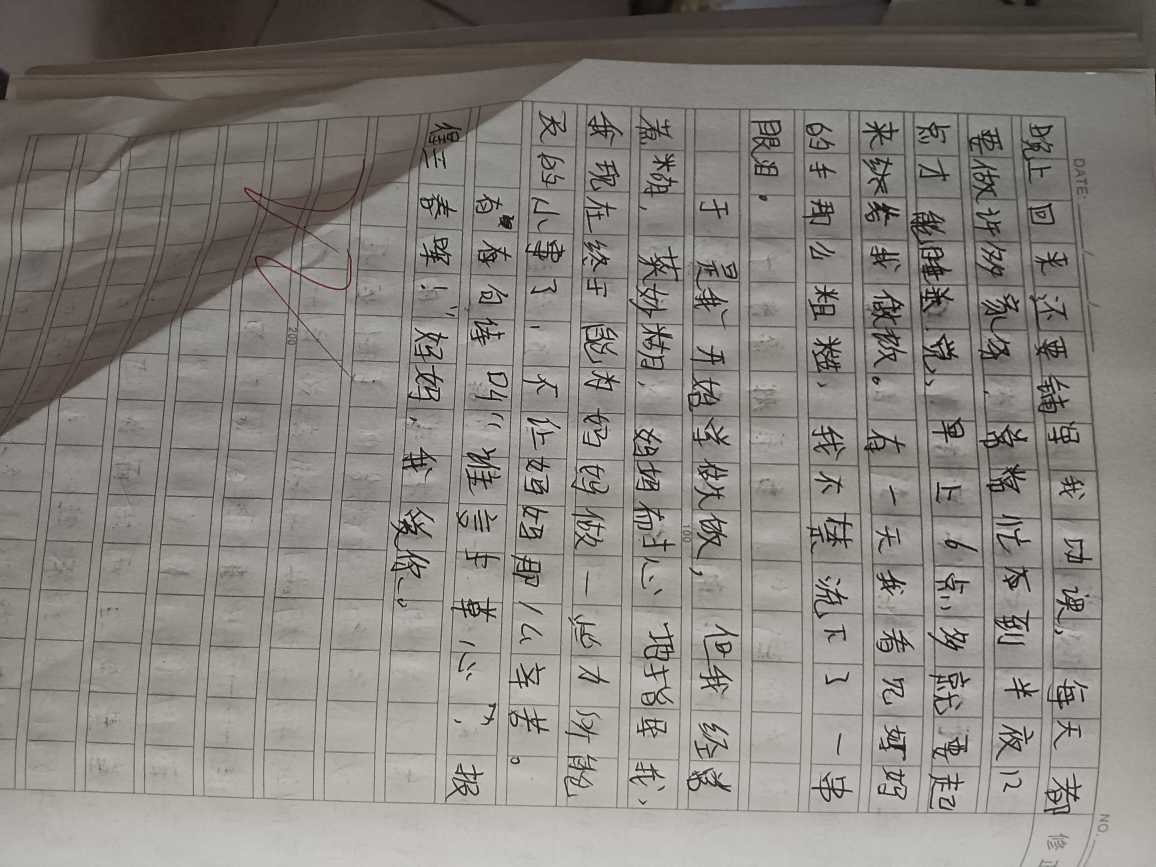 DATE:
晚上回来还要辅导我功课，每天都
要做许多家务，常常忙不到半夜12
点才能睡觉，早上6点多就要起
来给我做饭。有一天我看见妈妈
的手那么粗糙，我不禁流下了一串
眼泪。
于是我开始学做饭，但我经常
煮糊，菜炒糊，妈妈耐心地指导我，
我现在终于能为妈妈做一些力所能
及的小事了，不让妈妈那么辛苦。
有首句诗叫“谁言寸草心，报
得三春晖！”妈妈，我爱你。
100
200
NO.